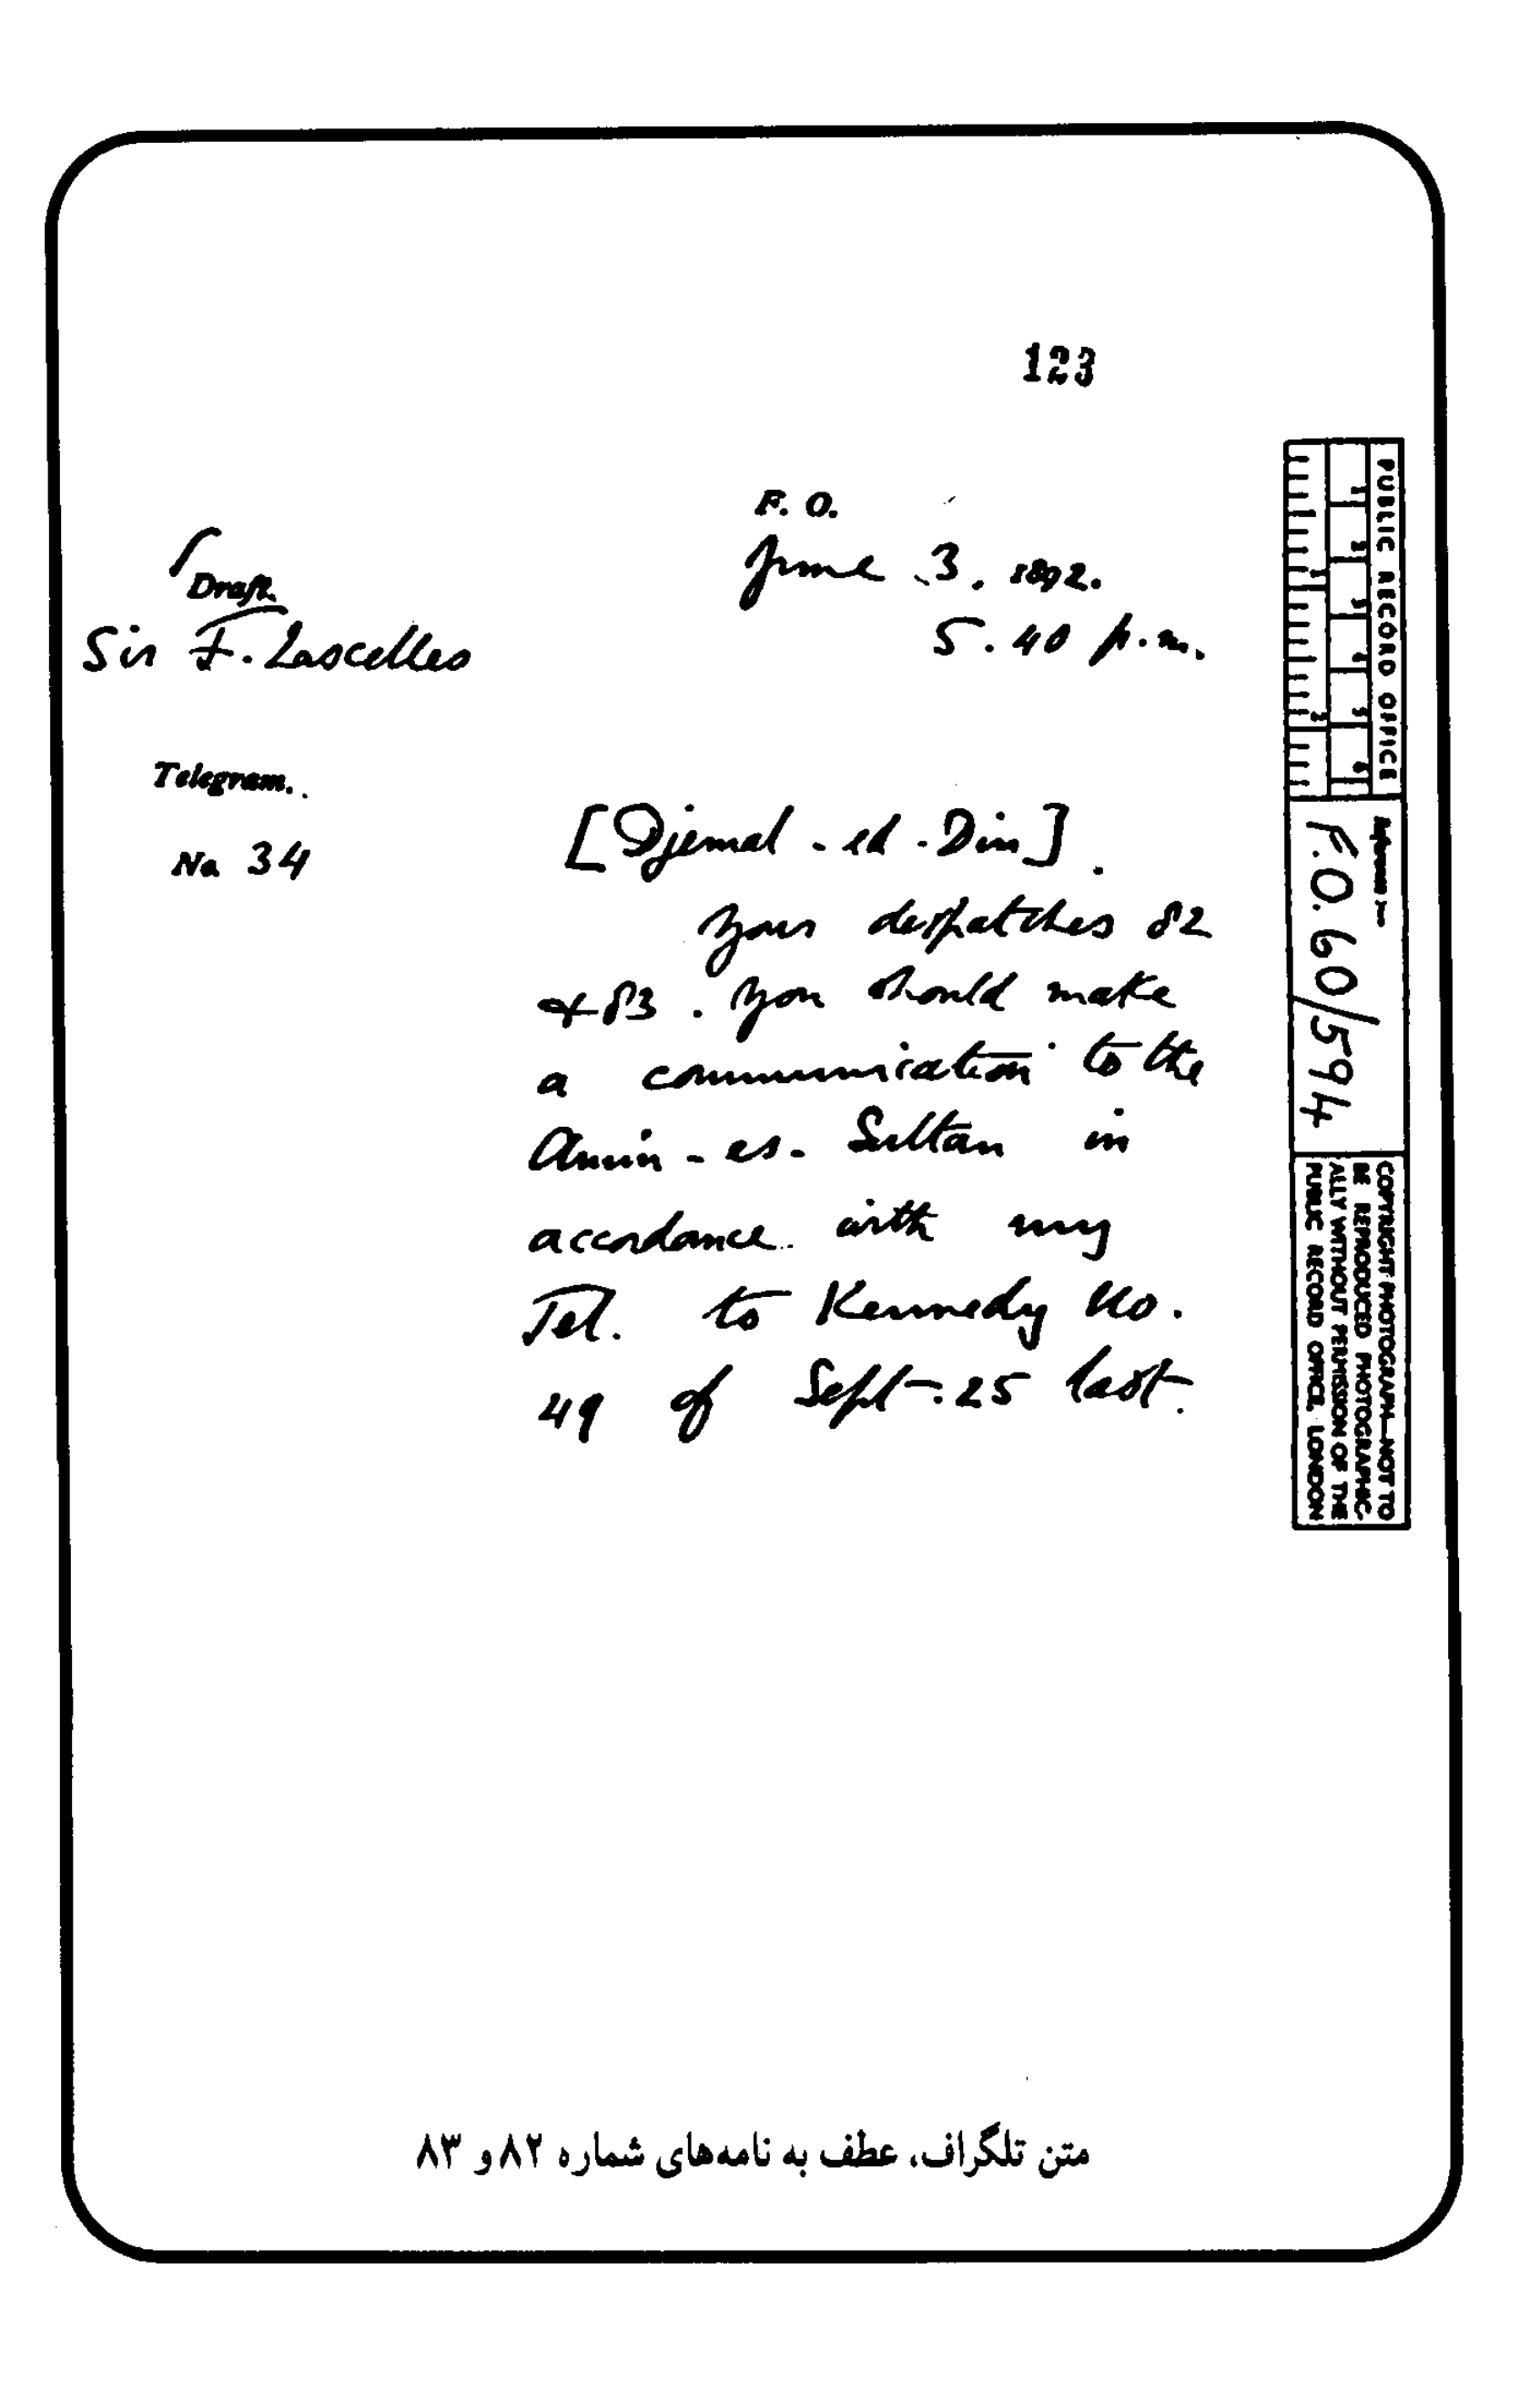 123
F. O.
June 3. 1892.
5.40 p.m.
Draft
Sir F. Lascelles
Telegram.
No 34
[Djemal-ed-Din].
Your despatches 82
& 83. You should make
a communication to the
Amin-es-Sultan in
accordance with my
Tel. to Kennedy No.
49 of Sept. 25 last.
PUBLIC RECORD OFFICE
1 2 3 4 5 6
1 2
Reference:-
F.O. 60/594
COPYRIGHT PHOTOGRAPH—NOT TO
BE REPRODUCED PHOTOGRAPHIC-
ALLY WITHOUT PERMISSION OF THE
PUBLIC RECORD OFFICE, LONDON
متن تلگراف، عطف به نامه‌های شماره ۸۲ و ۸۳